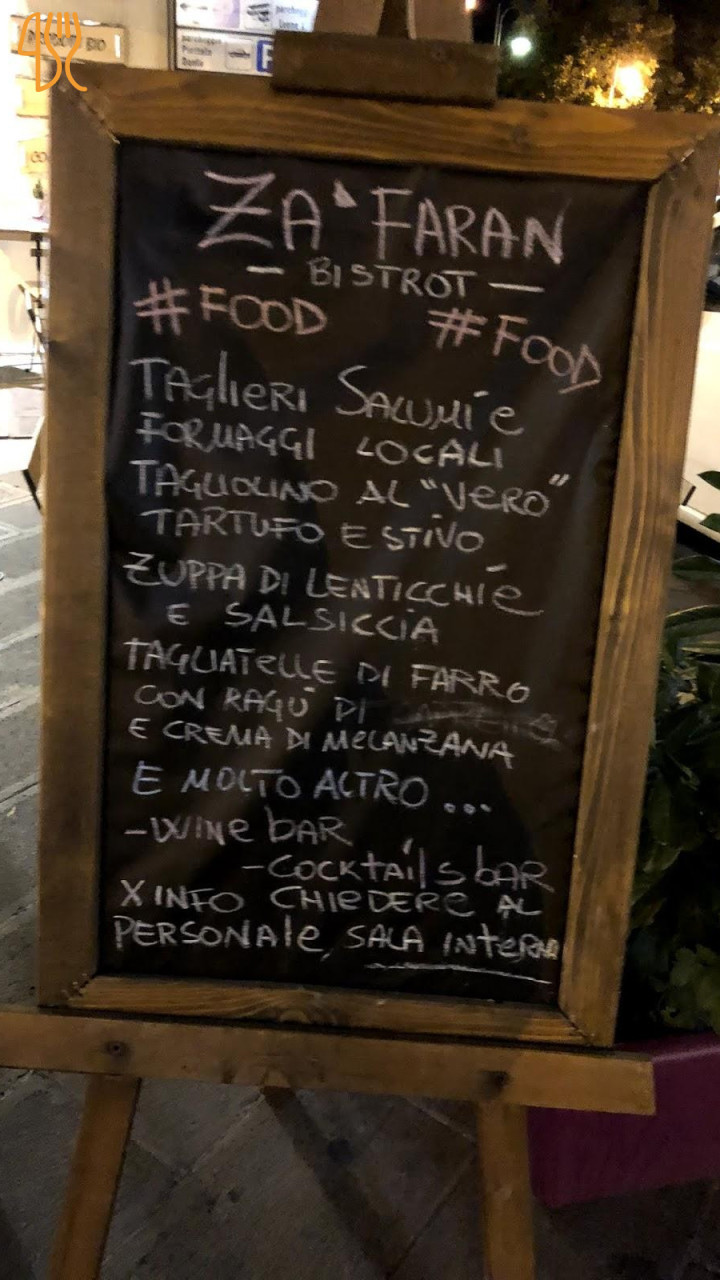 parcheggio
Piattola
Duello
P
ZA'FARAN
- BISTROT -
#FOOD #FOOD
TAGLIERI SALUMI E
FORMAGGI LOCALI
TAGLIOLINO AL "VERO"
TARTUFO ESTIVO
ZUPPA DI LENTICCHIE
E SALSICCIA
TAGLIATELLE DI FARRO
CON RAGÙ DI
E CREMA DI MELANZANA
E MOLTO ALTRO ...
-WINE BAR
-COCKTAILS BAR
X INFO CHIEDERE AL
PERSONALE, SALA INTERNA